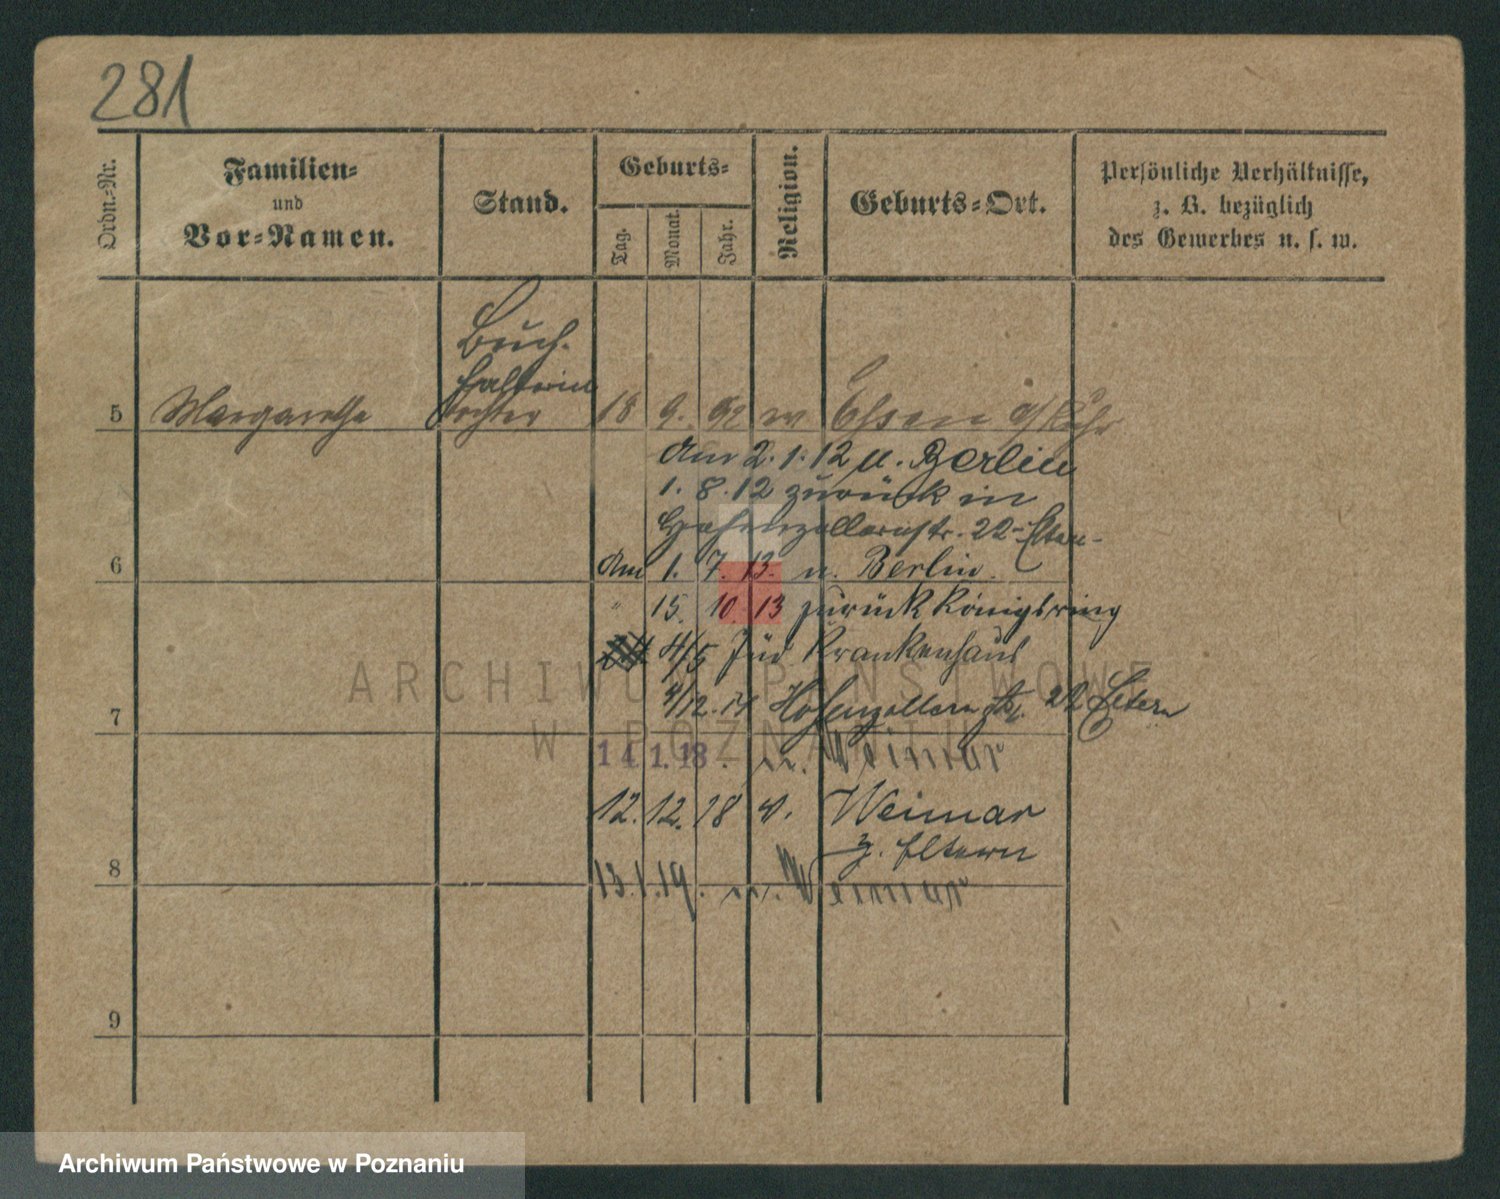 281
Ordn.-Nr.
Familien-
und
Vor-Namen.
Stand.
Geburts-
Tag.
Monat.
Jahr.
Religion.
Geburts-Ort.
Persönliche Verhältnisse,
z. B. bezüglich
des Gewerbes u. s. w.
Buch-
halterin
5 Margarethe Tochter 18 9. 92 Essen a/Ruhr
Am 2.1.12 n. Berlin
1.8.12 zurück in
Hohenzollernstr. 22 Eltern
6 Am 1. 7. 13. n. Berlin.
" 15. 10. 13 zurück Königsring
4/5 Jüd Krankenhaus
7 4/12.14 Hohenzollernstr. 22 Eltern
14 1. 18. n. Weimar
12. 12. 18 v. Weimar
z. Eltern
8 13.1.19. n. Weimar
9
ARCHIWUM PAŃSTWOWE
W POZNANIU
Archiwum Państwowe w Poznaniu